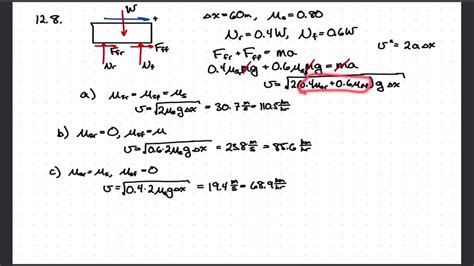 12.8.
W
+
F_fr F_ff
N_r N_f
Δx = 60m, μ_s = 0.80
N_r = 0.4W, N_f = 0.6W
F_fr + F_ff = ma
0.4μ_sr mg + 0.6μ_sf mg = ma
v² = 2aΔx
v = √(2(0.4μ_sr + 0.6μ_sf) g Δx)
a) μ_sr = μ_sf = μ_s
v = √(2μ_s gΔx) = 30.7 m/s = 110.5 km/hr
b) μ_sr = 0, μ_sf = μ
v = √(0.6·2μ_s gΔx) = 23.8 m/s = 85.6 km/hr
c) μ_sr = μ_s, μ_sf = 0
v = √(0.4·2μ_s gΔx) = 19.4 m/s = 68.9 km/hr